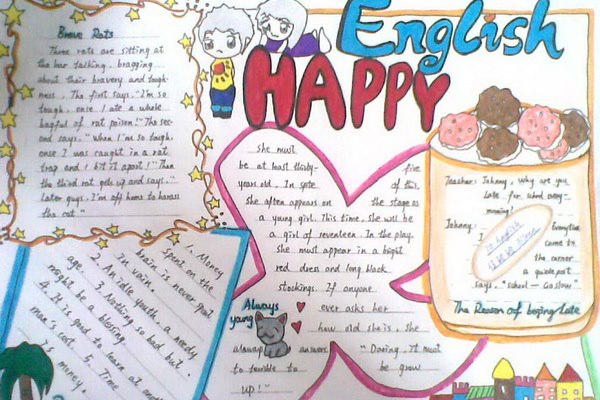 English
HAPPY
Brave Rats
Three rats are sitting at
the bar talking, bragging
about their bravery and tough-
ness. The first says "I'm so
tough, once I ate a whole
bagful of rat poison!" The sec-
ond says. "When I'm so tough,
once I was caught in a rat
trap and I bit it apart!" Then
the third rat gets up and says."
Later guys, I'm off home to harass
the cat."
she must
be at least thirty- five
years old. In spite of this,
she often appears on the stage as
a young girl. This time, she will be
a girl of seventeen. In the play,
she must appear in a bright
red dress and long black
stockings. If anyone
ever asks her
how old she is, she
always answers "Daring, it must
be grow
to terrible to
up!"
Always
young
Teacher: Johnny, Why are you
late for school every-
morning?
Johnny: Everytime
came to
the corner
a guide post
says, "school — Go slow"
The Reason of being late
1. Money
spent on the
brain is never spent
in vain.
2. An idle youth, a needy
age.
3. Nothing so bad but
might be a blessing.
4. It is good to learn at
man's cost. 5. Time
is money.